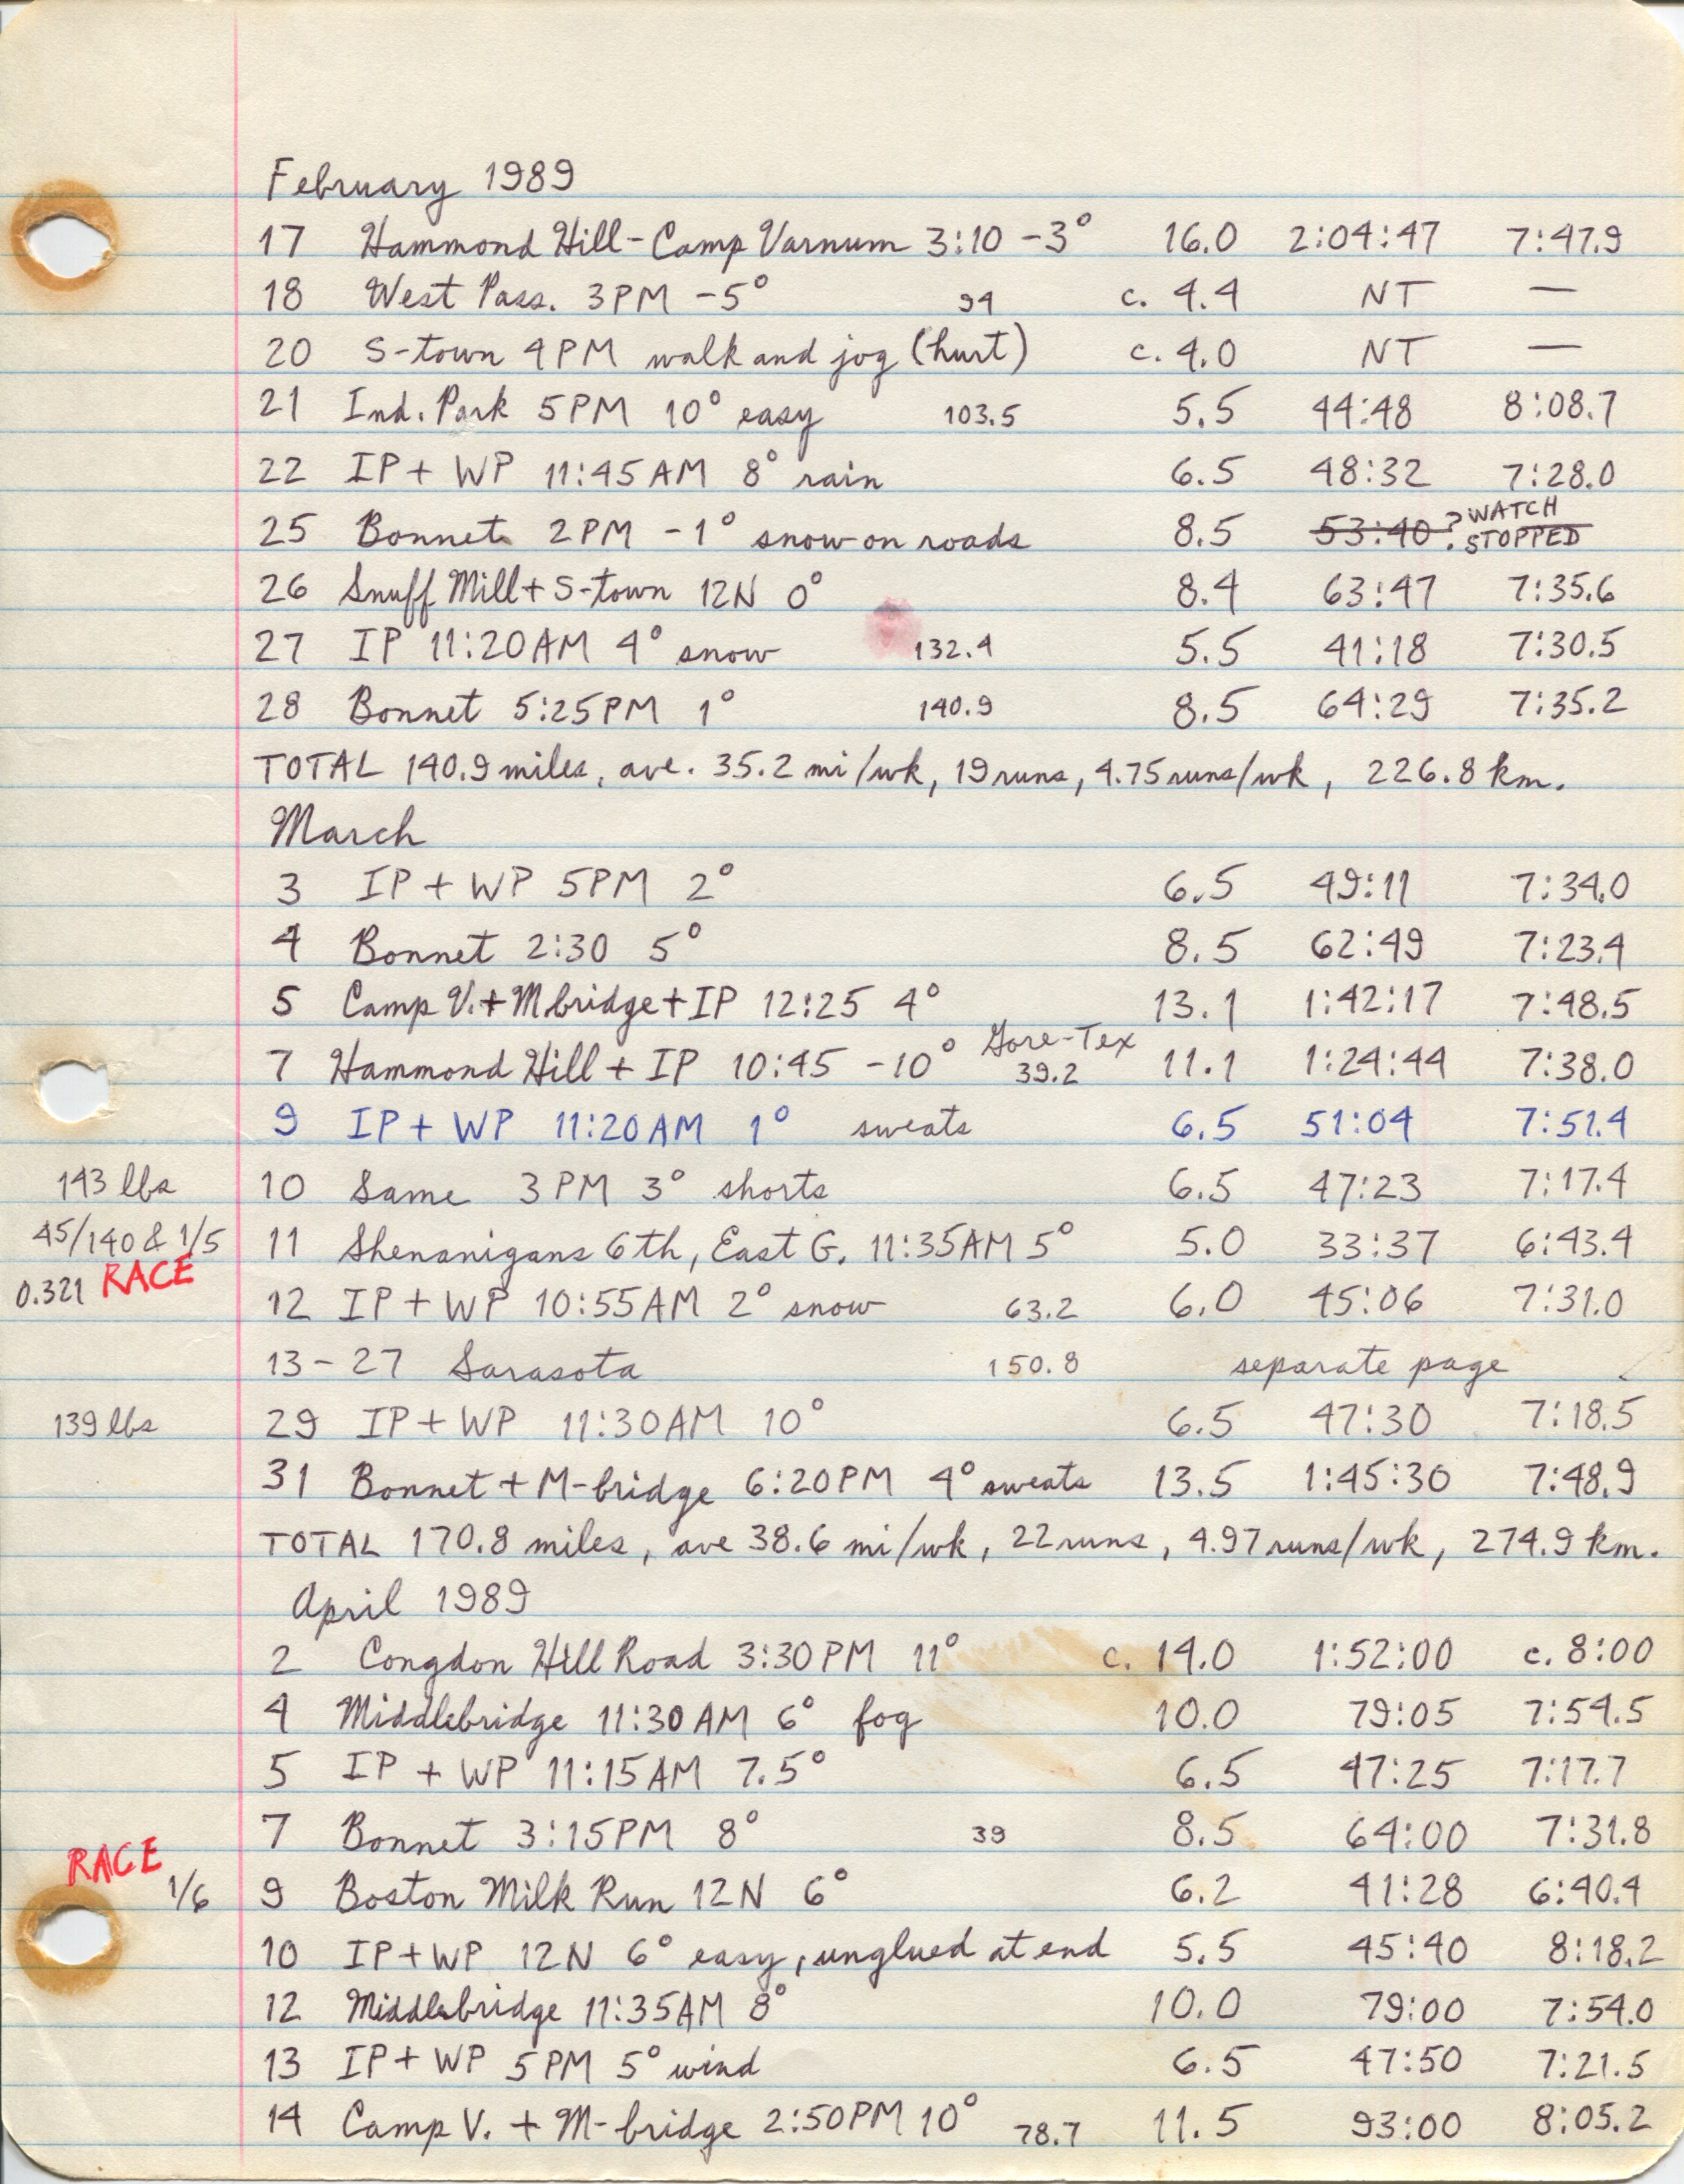 February 1989
17 Hammond Hill-Camp Varnum 3:10 -3° 16.0 2:04:47 7:47.9
18 West Pass. 3PM -5° 94 c. 4.4 NT —
20 S-town 4PM walk and jog (hurt) c. 4.0 NT —
21 Ind. Park 5PM 10° easy 103.5 5.5 44:48 8:08.7
22 IP + WP 11:45AM 8° rain 6.5 48:32 7:28.0
25 Bonnet 2PM -1° snow on roads 8.5 53:40? WATCH STOPPED
26 Snuff Mill + S-town 12N 0° 8.4 63:47 7:35.6
27 IP 11:20AM 4° snow 132.4 5.5 41:18 7:30.5
28 Bonnet 5:25PM 1° 140.9 8.5 64:29 7:35.2
TOTAL 140.9 miles, ave. 35.2 mi/wk, 19 runs, 4.75 runs/wk, 226.8 km.
March
3 IP + WP 5PM 2° 6.5 49:11 7:34.0
4 Bonnet 2:30 5° 8.5 62:49 7:23.4
5 Camp V. + Mbridge + IP 12:25 4° 13.1 1:42:17 7:48.5
7 Hammond Hill + IP 10:45 -10° Gore-Tex 39.2 11.1 1:24:44 7:38.0
9 IP + WP 11:20AM 1° sweats 6.5 51:04 7:51.4
143 lbs 10 Same 3PM 3° shorts 6.5 47:23 7:17.4
45/140 & 1/5 11 Shenanigans 6th, East G. 11:35AM 5° 5.0 33:37 6:43.4
0.321 RACE 12 IP + WP 10:55AM 2° snow 63.2 6.0 45:06 7:31.0
13-27 Sarasota 150.8 separate page
139 lbs 29 IP + WP 11:30AM 10° 6.5 47:30 7:18.5
31 Bonnet + M-bridge 6:20PM 4° sweats 13.5 1:45:30 7:48.9
TOTAL 170.8 miles, ave 38.6 mi/wk, 22 runs, 4.97 runs/wk, 274.9 km.
April 1989
2 Congdon Hill Road 3:30PM 11° c. 14.0 1:52:00 c. 8:00
4 Middlebridge 11:30AM 6° fog 10.0 79:05 7:54.5
5 IP + WP 11:15AM 7.5° 6.5 47:25 7:17.7
7 Bonnet 3:15PM 8° 39 8.5 64:00 7:31.8
RACE
1/6 9 Boston Milk Run 12N 6° 6.2 41:28 6:40.4
10 IP + WP 12N 6° easy, unglued at end 5.5 45:40 8:18.2
12 Middlebridge 11:35AM 8° 10.0 79:00 7:54.0
13 IP + WP 5PM 5° wind 6.5 47:50 7:21.5
14 Camp V. + M-bridge 2:50PM 10° 78.7 11.5 93:00 8:05.2